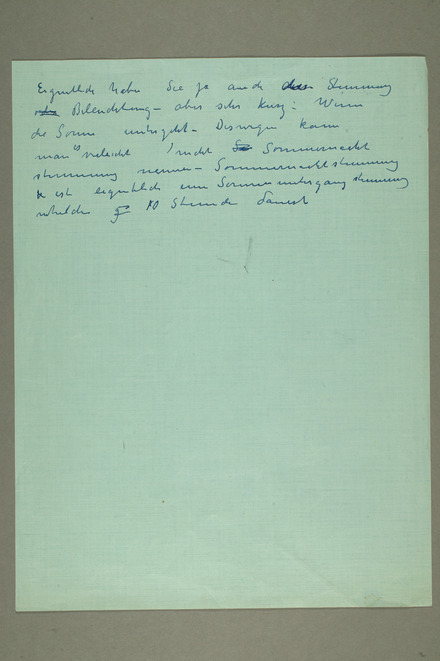 Eigentlich haben Sie ja auch diese Stimmung
Beleuchtung – aber sehr kurz: Wenn
die Sonne untergeht – Deswegen kann
man es vielleicht nicht Sommernacht
stimmung nennen – Sommernachtstimmung
ist eigentlich eine Sonnenuntergangstimmung
welche 10 Stunde dauert